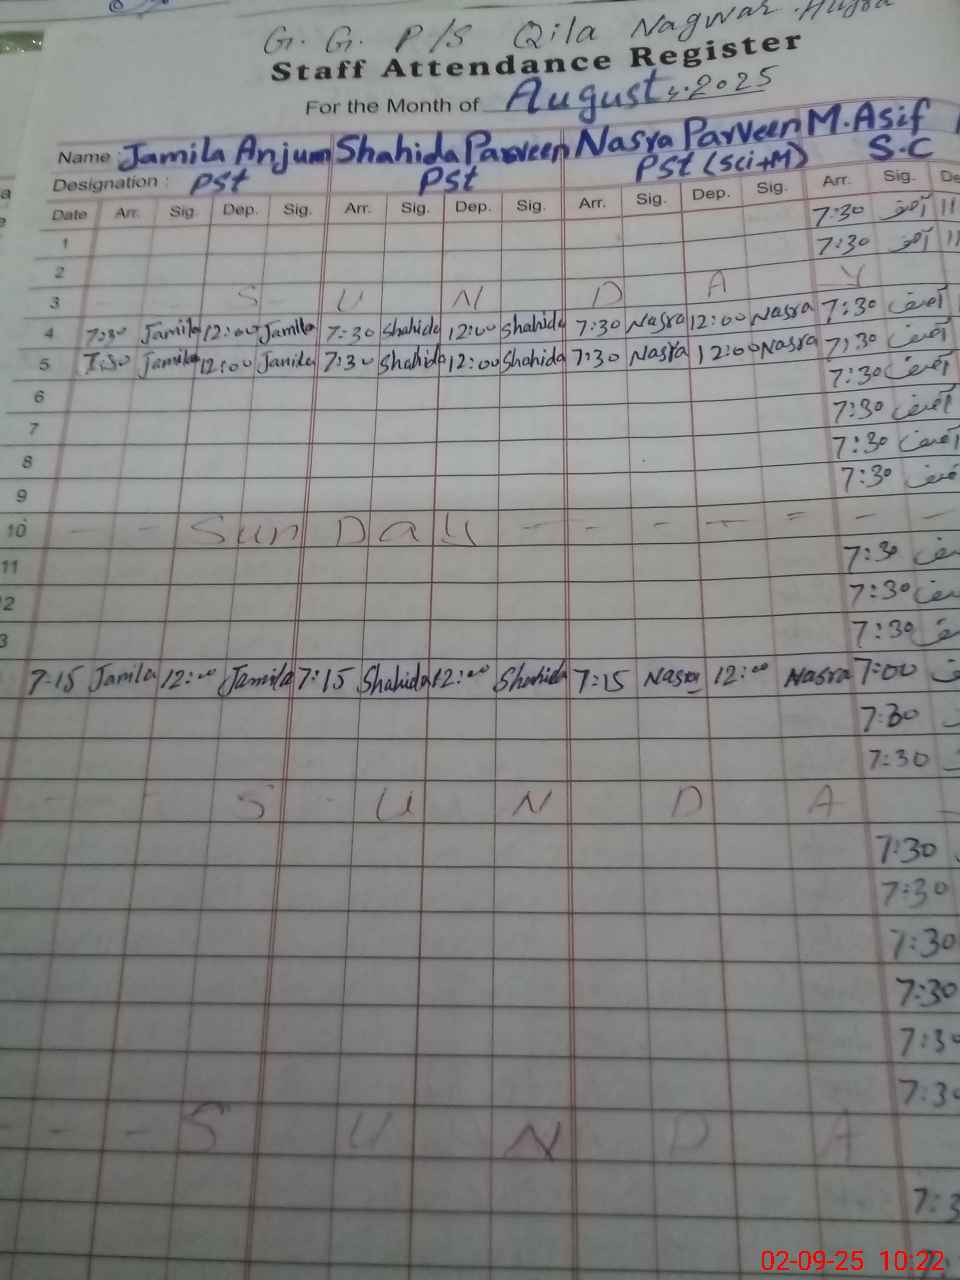 G. G. P/S Qila Nagwar
Staff Attendance Register
For the Month of August, 2025
Name Jamila Anjum Shahida Parveen Nasra Parveen M. Asif
Designation : PST PST PST (Sci+M) S.C
Date Arr. Sig. Dep. Sig. Arr. Sig. Dep. Sig. Arr. Sig. Dep. Sig. Arr. Sig. De
1 7:30 آصف 11
2 7:30 آصف 11
3 S U N D A Y
4 7:30 Jamila 12:00 Jamila 7:30 Shahida 12:00 Shahida 7:30 Nasra 12:00 Nasra 7:30 آصف
5 7:30 Jamila 12:00 Jamila 7:30 Shahida 12:00 Shahida 7:30 Nasra 12:00 Nasra 7:30 آصف
6 7:30 آصف
7 7:30 آصف
8 7:30 آصف
9 7:30
10 - - Sun Day - - - - = - -
11 7:30
2 7:30
3 7:30
7:15 Jamila 12:00 Jamila 7:15 Shahida 12:00 Shahida 7:15 Nasra 12:00 Nasra 7:00
7:30
7:30
- - S - U N D A -
7:30
7:30
7:30
7:30
7:30
7:30
- - - S U N D A
7:3
02-09-25 10:22